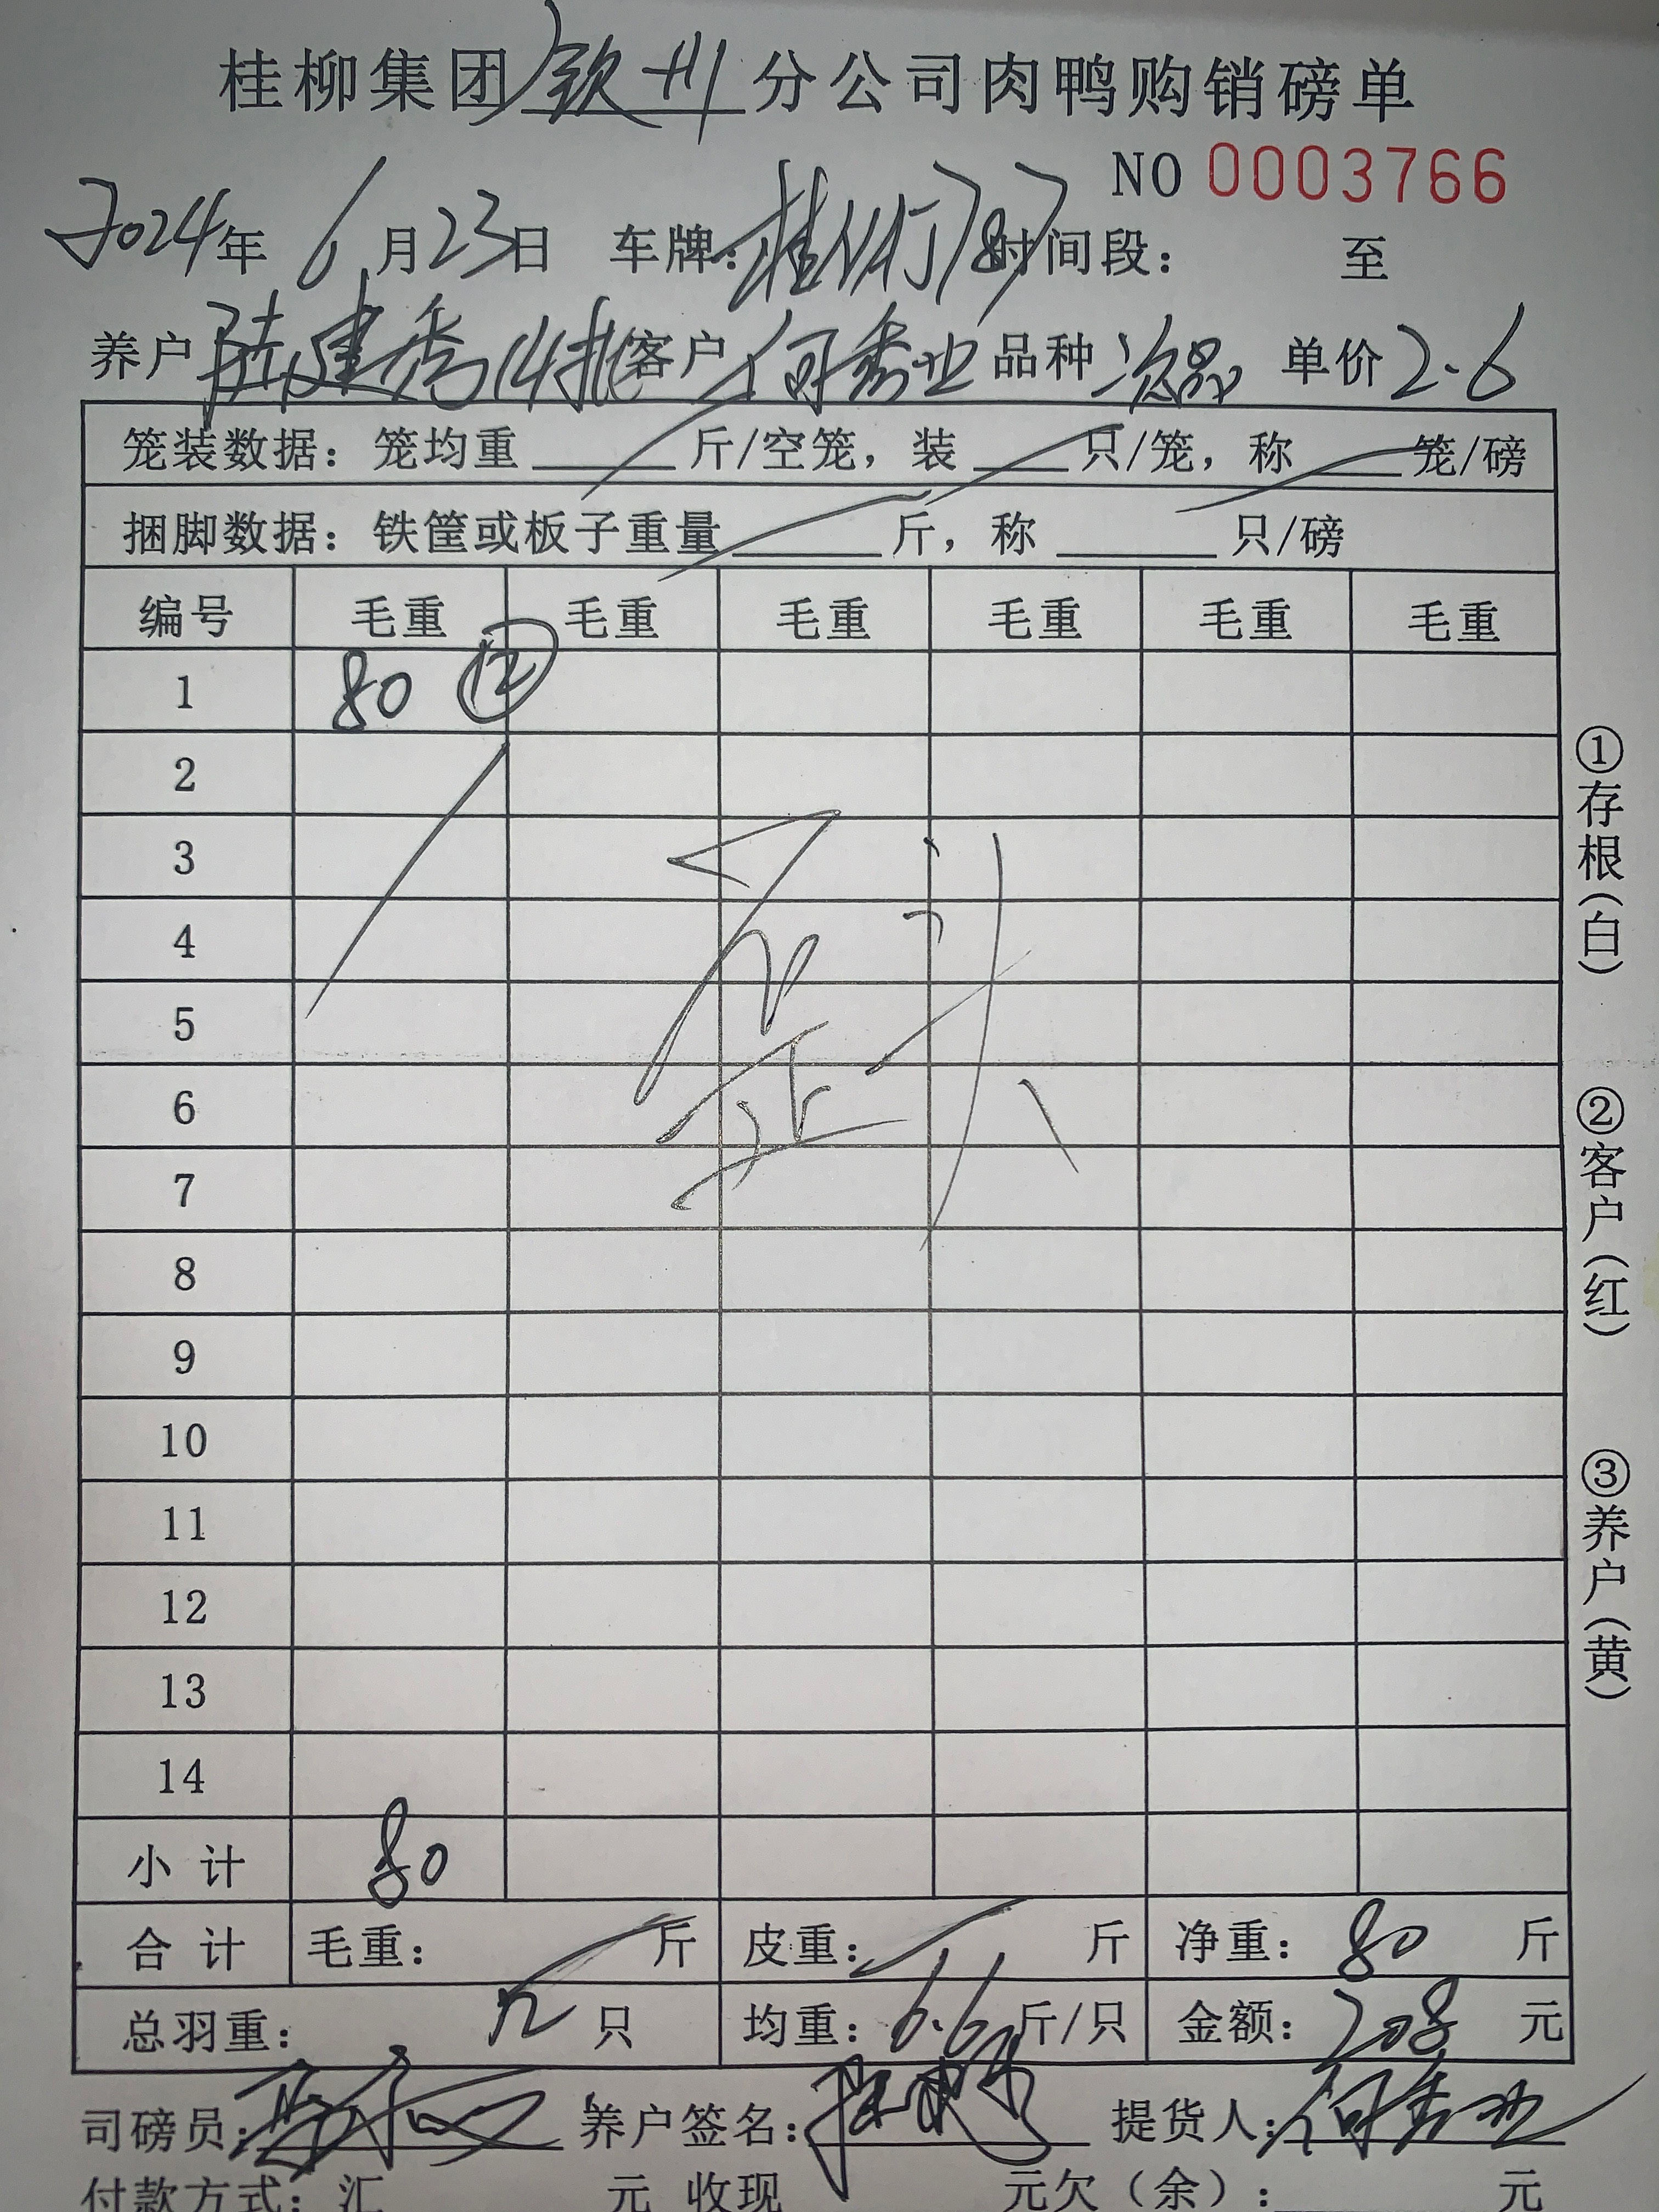 桂柳集团钦州分公司肉鸭购销磅单
NO 0003766
2024年 6月23日 车牌: 时间段: 至
养户 陆建秀14批 客户 何秀业 品种 次品 单价 2.6
笼装数据: 笼均重 斤/空笼, 装 只/笼, 称 笼/磅
捆脚数据: 铁筐或板子重量 斤, 称 只/磅
编号 毛重 毛重 毛重 毛重 毛重 毛重
1 80 ⑫
2
3
4
5
6
7
8
9
10
11
12
13
14
小计 80
合计 毛重: 斤 皮重: 斤 净重: 80 斤
总羽重: 12 只 均重: 6.6 斤/只 金额: 208 元
司磅员: 养户签名: 提货人: 何秀业
付款方式: 汇 元 收现 元欠(余): 元
①存根(白)
②客户(红)
③养户(黄)